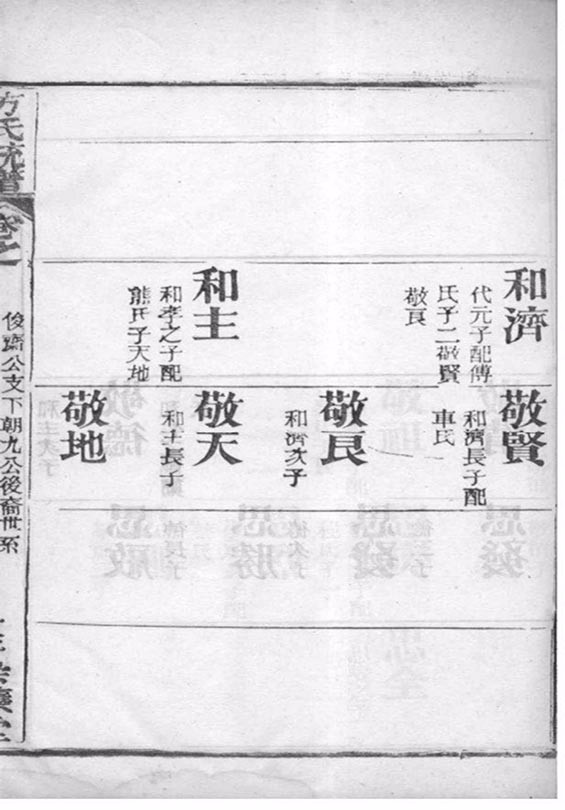 和濟
代元子配傅
氏子二敬賢
敬良
和主
和孝之子配
熊氏子天地
敬賢
和濟長子配
車氏
敬良
和濟次子
敬天
和主長子
敬地
方氏統譜
卷之一
俊齋公支下朝九公後裔世系